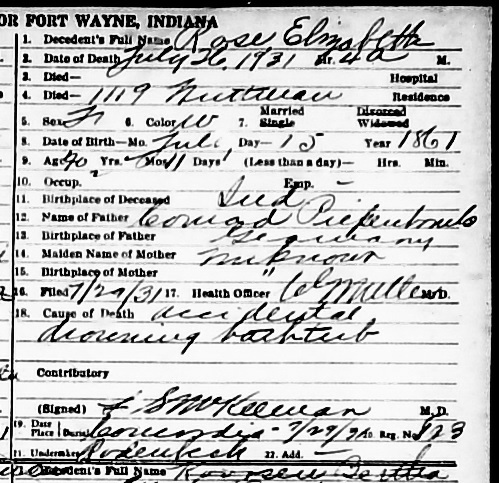 OR FORT WAYNE, INDIANA
1. Decedent's Full Name Rose Elizabeth
2. Date of Death July 26, 1931 Hr. 4 a M.
3. Died— Hospital
4. Died— 1119 Nuttman Residence
5. Sex F 6. Color W 7. Married Single Divorced Widowed
8. Date of Birth—Mo. July Day— 15 Year 1861
9. Age 70 Yrs. Mos. 11 Days (Less than a day)— Hrs. Min.
10. Occup. Emp. —
11. Birthplace of Deceased Ind
12. Name of Father Conrad
13. Birthplace of Father Germany
14. Maiden Name of Mother unknown
15. Birthplace of Mother "
16. Filed 7/29/31 17. Health Officer M.D.
18. Cause of Death accidental
drowning bathtub
Contributory
(Signed) McKeeman M. D.
19. Date Place Burial Concordia - 7/29/31 20. Reg. No. 123
21. Undertaker 22. Add. —
Decedent's Full Name Bertha